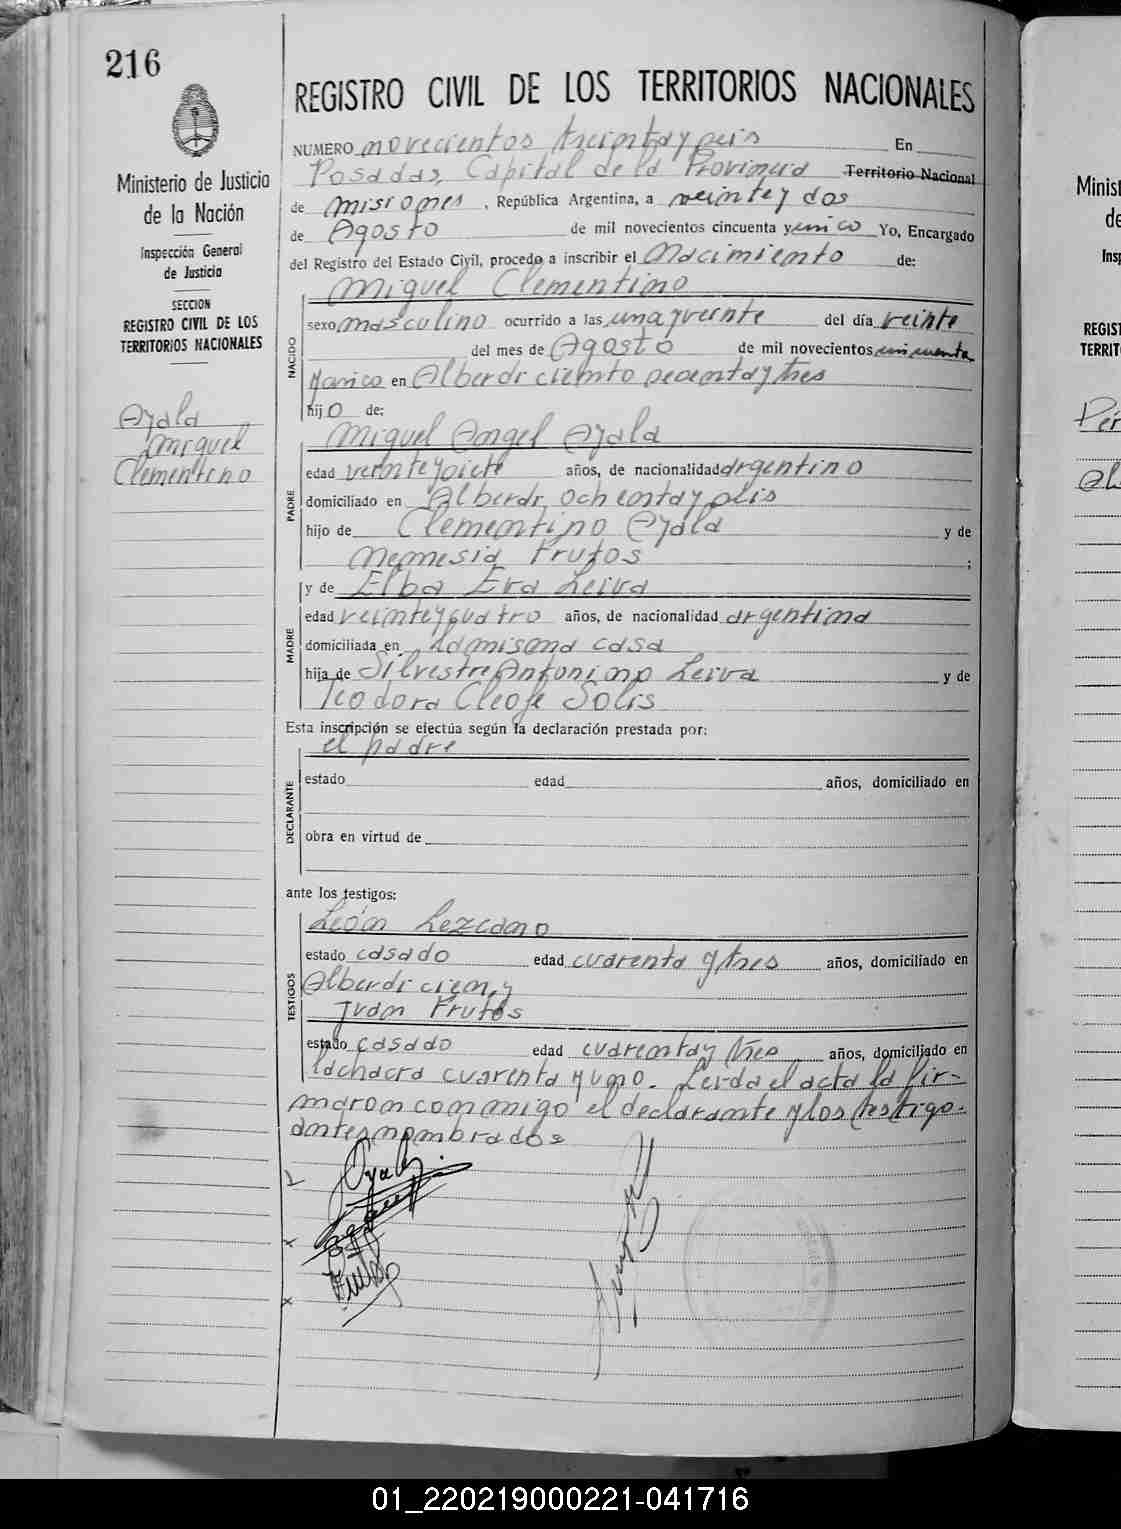 216
Ministerio de Justicia
de la Nación
Inspección General
de Justicia
SECCION
REGISTRO CIVIL DE LOS
TERRITORIOS NACIONALES
Ayala
Miguel
Clementino
REGISTRO CIVIL DE LOS TERRITORIOS NACIONALES
NUMERO novecientos treinta y seis En
Posadas, Capital de la Provincia Territorio Nacional
de Misiones, República Argentina, a veinte y dos
de Agosto de mil novecientos cincuenta y unico Yo, Encargado
del Registro del Estado Civil, procedo a inscribir el Nacimiento de:
Miguel Clementino
NACIDO
sexo masculino ocurrido a las una y veinte del día veinte
del mes de Agosto de mil novecientos cincuenta
y unico en Alberdi ciento sesenta y tres
hijo de:
Miguel Angel Ayala
PADRE
edad veinte y siete años, de nacionalidad argentino
domiciliado en Alberdi ochenta y seis
hijo de Clementino Ayala y de
Nemesia Frutos ;
y de Elba Eva Leiva
MADRE
edad veinte y cuatro años, de nacionalidad argentina
domiciliada en la misma casa
hija de Silvestre Antonino Leiva y de
Teodora Cleofe Solis
Esta inscripción se efectúa según la declaración prestada por:
el padre
DECLARANTE
estado edad años, domiciliado en
obra en virtud de
ante los testigos:
León Lezcano
TESTIGOS
estado casado edad cuarenta y tres años, domiciliado en
Alberdi cien, y
Juan Frutos
estado casado edad cuarenta y tres años, domiciliado en
la chacra cuarenta y uno. Leida el acta la fir-
maron conmigo el declarante y los testigo.
antes nombrados
Ayala
Minist
de
Insp
REGIST
TERRIT
Pér
01_220219000221-041716